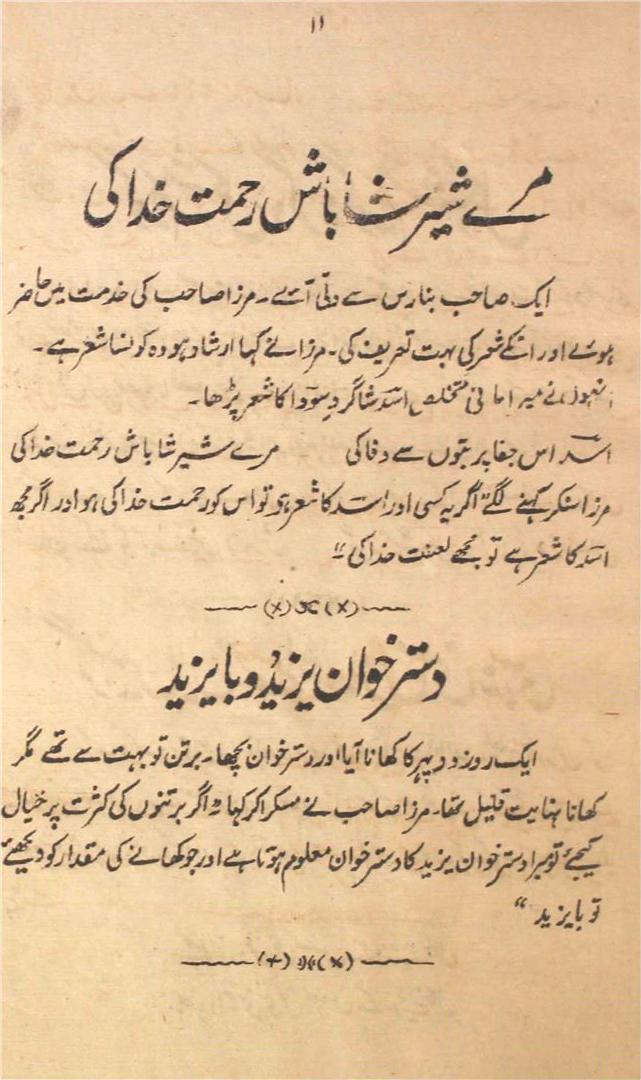 ۱۱
مرے شیر شاباش رحمت خدا کی
ایک صاحب بنارس سے دلّی آئے۔ مرزا صاحب کی خدمت میں حاضر
ہوئے اور انکے شعر کی بہت تعریف کی۔ مرزا نے کہا ارشاد ہو وہ کونسا شعر ہے۔
انہوں نے میر امانی متخلص اسدؔ شاگردِ سوؔدا کا شعر پڑھا۔
اسدؔ اس جفا پر بتوں سے وفا کی مرے شیر شاباش رحمت خدا کی
مرزا سنکر کہنے لگے "اگر یہ کسی اور اسدؔ کا شعر ہو تو اس کو رحمت خدا کی ہو اور اگر مجھ
اسدؔ کا شعر ہے تو مجھے لعنت خدا کی"
دسترخوان یزید و بایزید
ایک روز دوپہر کا کھانا آیا اور دسترخوان بچھا۔ برتن تو بہت سے تھے مگر
کھانا نہایت قلیل تھا۔ مرزا صاحب نے مسکرا کر کہا "اگر برتنوں کی کثرت پر خیال
کیجئے تو میرا دسترخوان یزید کا دسترخوان معلوم ہوتا ہے اور جو کھانے کی مقدار کو دیکھئے
تو بایزید"